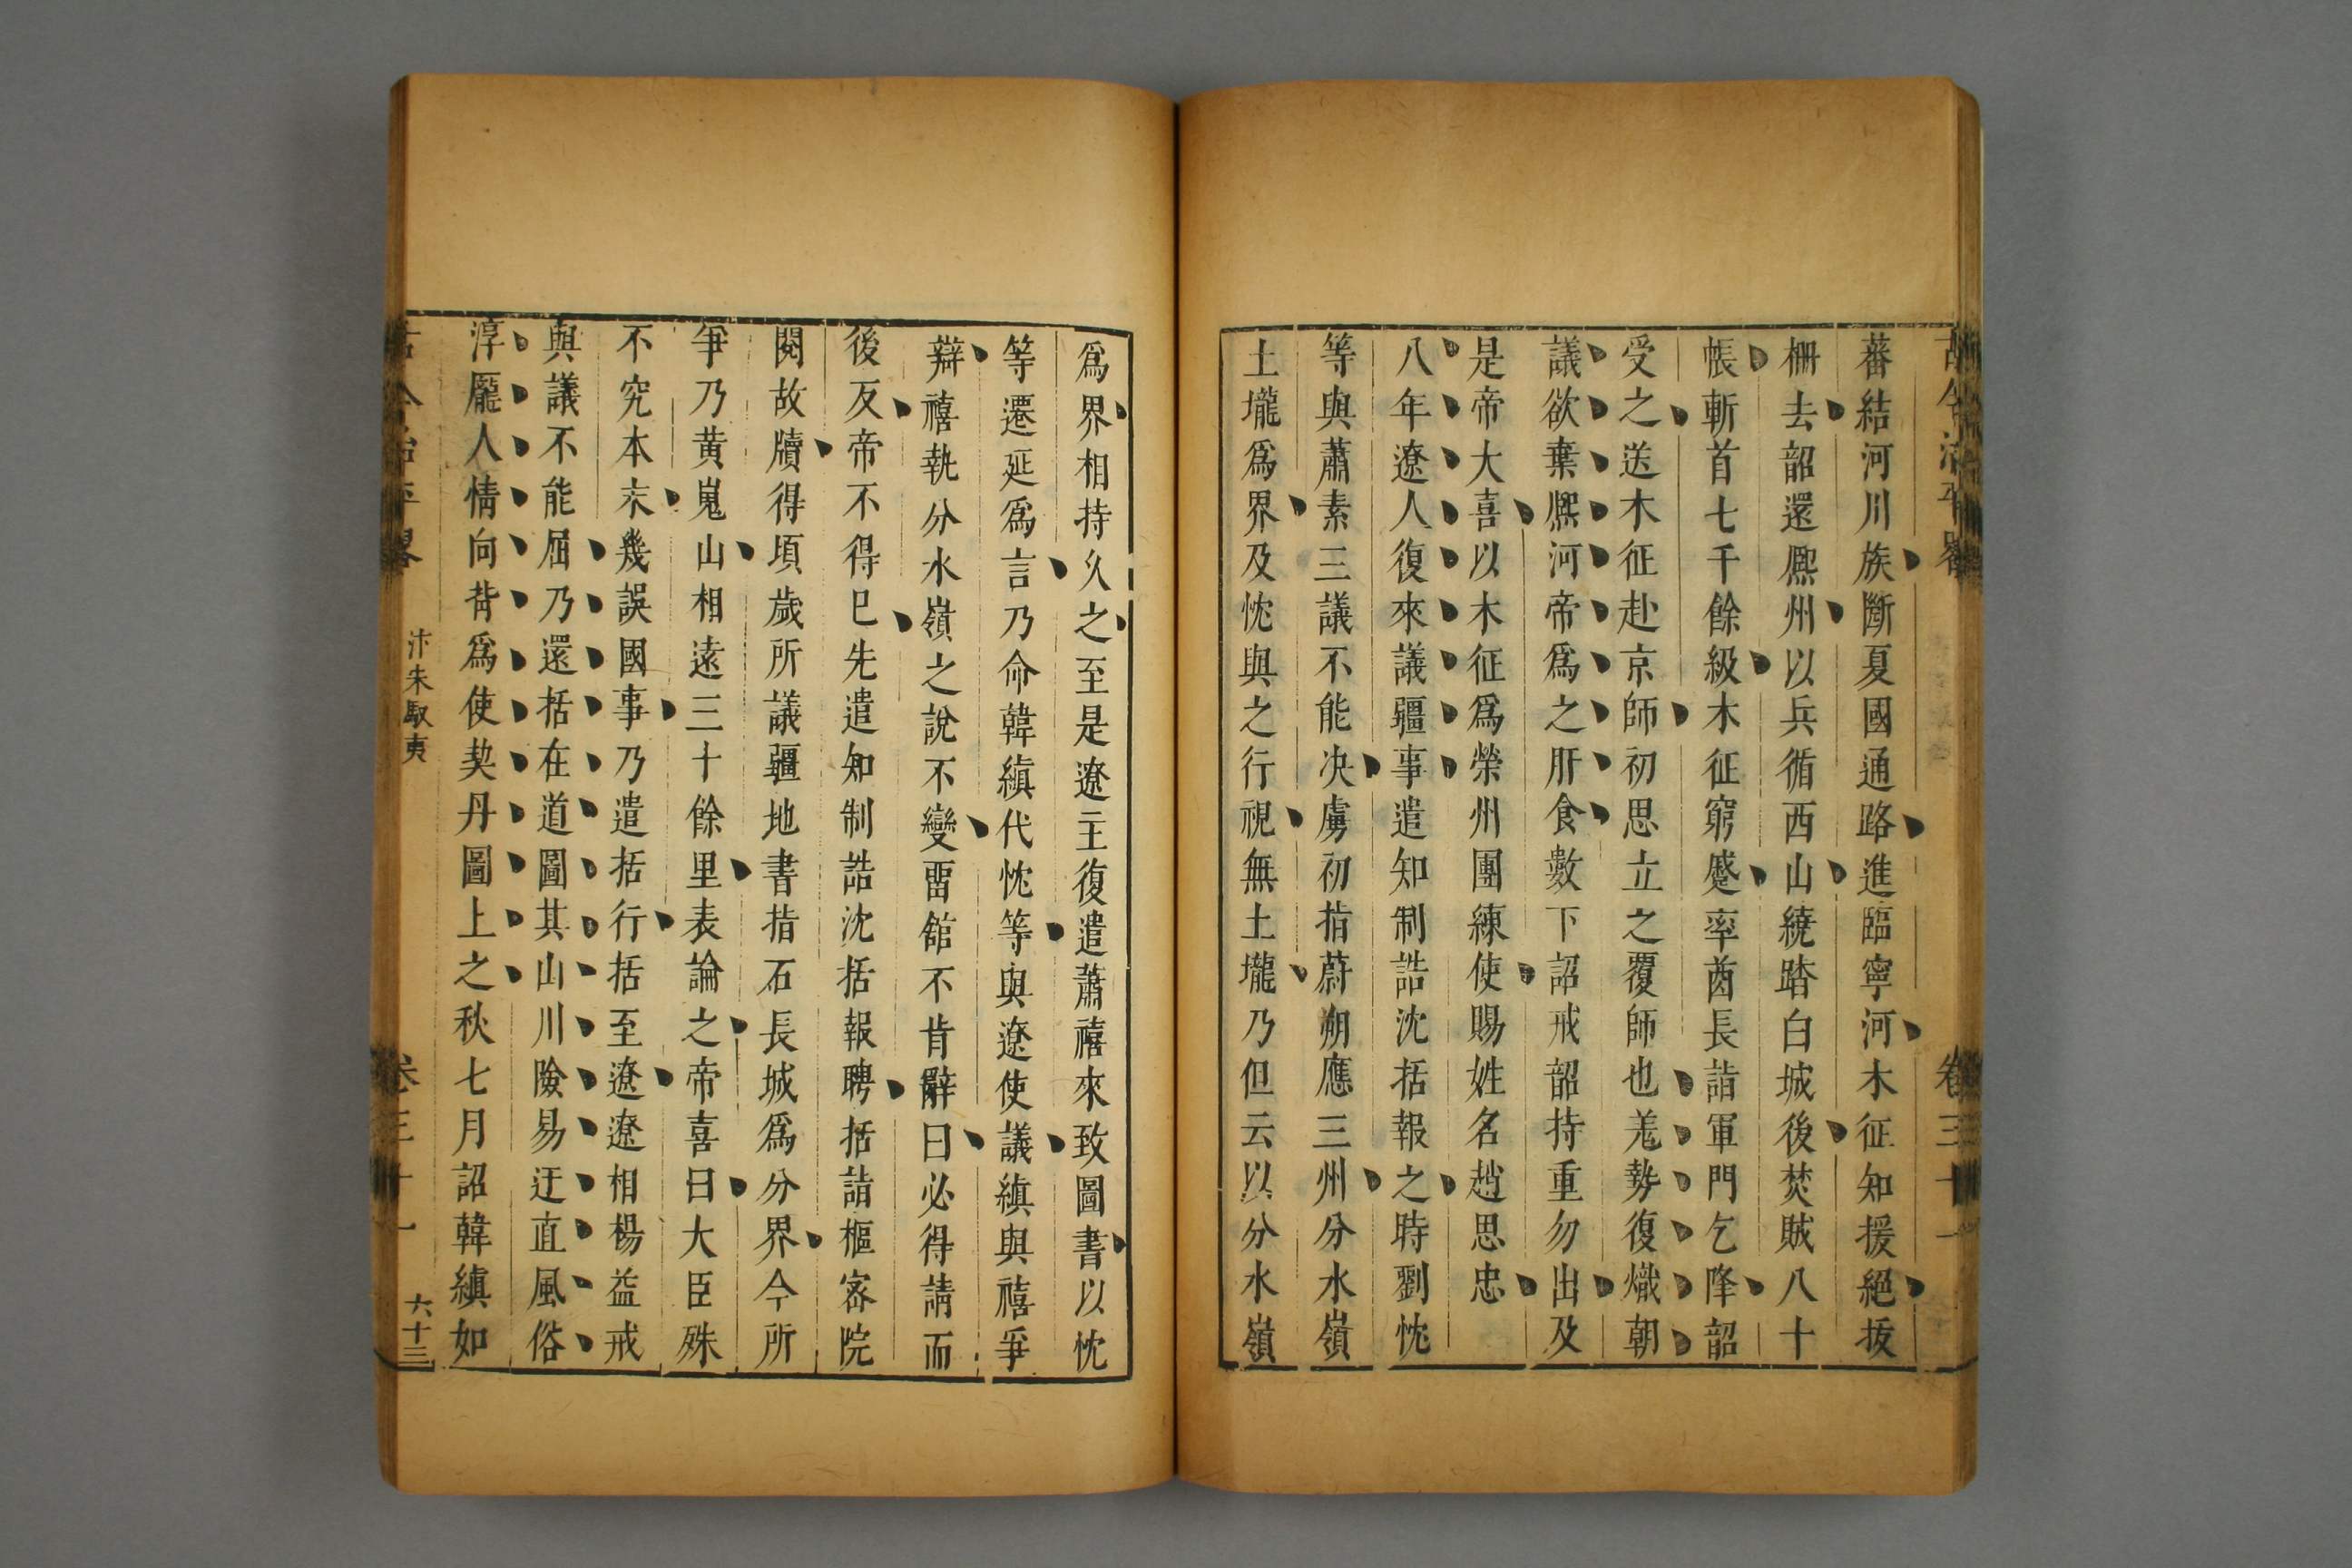 蕃結河川族斷夏國通路進臨寧河木征知援絕拔
柵去韶還熈州以兵循西山繞踏白城後焚賊八十
帳斬首七千餘級木征窮蹙率酋長詣軍門乞降韶
受之送木征赴京師初思立之覆師也羌勢復熾朝
議欲棄熈河帝爲之肝食數下詔戒韶持重勿出及
是帝大喜以木征爲榮州團練使賜姓名趙思忠
八年遼人復來議疆事遣知制誥沈括報之時劉忱
等與蕭素三議不能决虜初指蔚朔應三州分水嶺
土壠爲界及忱與之行視無土壠乃但云以分水嶺
爲界相持久之至是遼主復遣蕭禧來致圖書以忱
等遷延爲言乃命韓縝代忱等與遼使議縝與禧爭
辯禧執分水嶺之說不變畱舘不肯辭曰必得請而
後反帝不得巳先遣知制誥沈括報聘括詣樞密院
閱故牘得頃歲所議疆地書指石長城爲分界今所
爭乃黃嵬山相遠三十餘里表論之帝喜曰大臣殊
不究本末幾誤國事乃遣括行括至遼遼相楊益戒
與議不能屈乃還括在道圖其山川險易迂直風俗
淳龎人情向背爲使契丹圖上之秋七月詔韓縝如
古今治平畧
汴宋馭夷
卷三十一
六十三